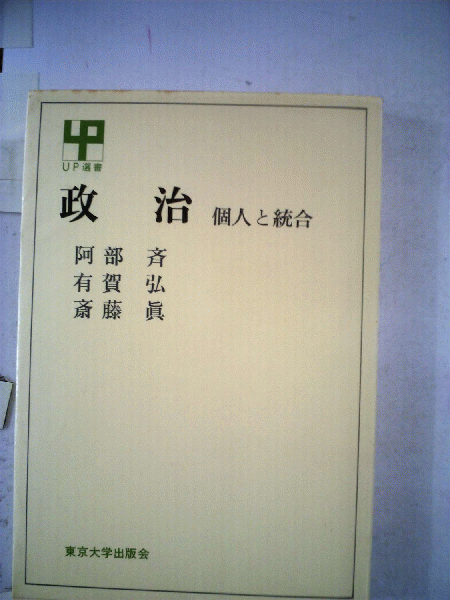 UP
UP選書
政治 個人と統合
阿部 斉
有賀 弘
斎藤 眞
東京大学出版会